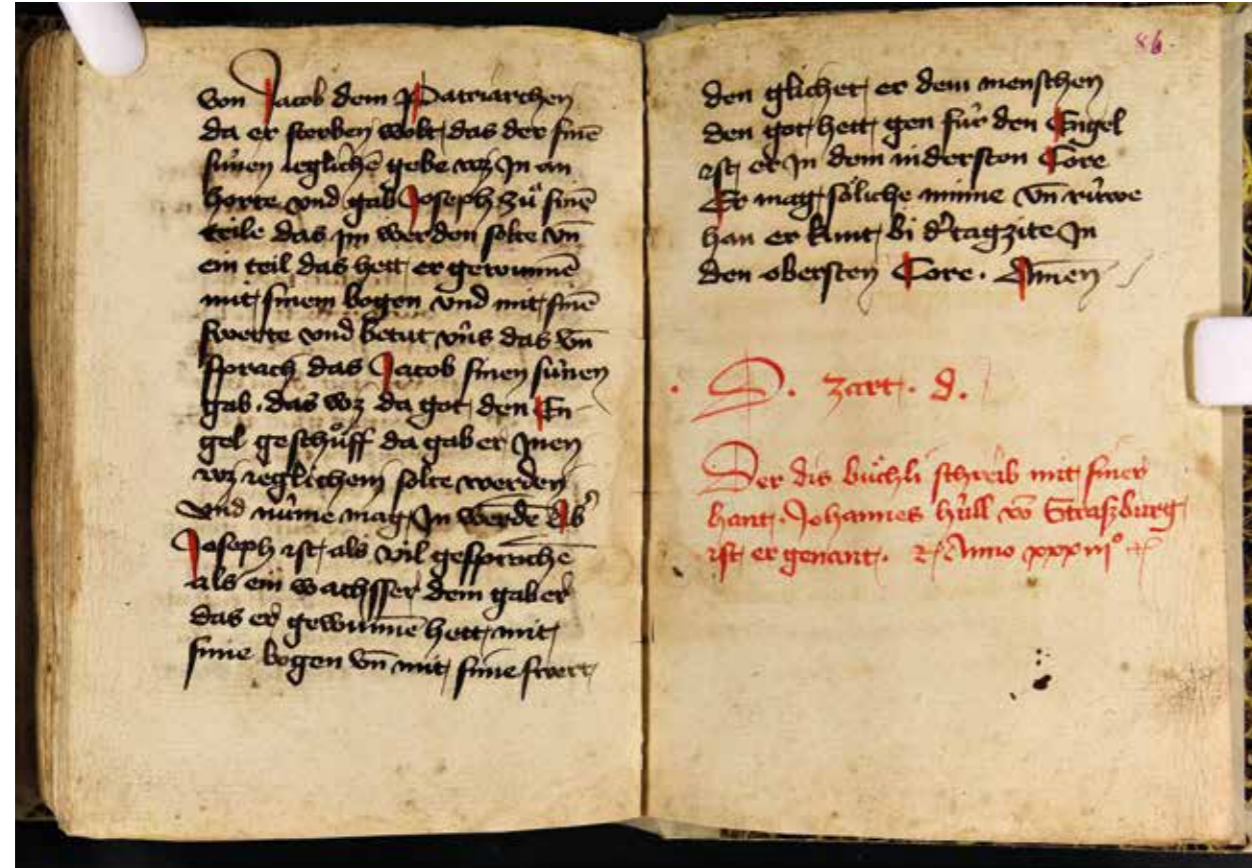 von Jacob dem Patriarchen
da er sterben wolt das der sinē
sünen ieglichē gebe wz Jn an
horte vnd gab Joseph zů sinē
teile das jm werden solte vn̄
ein teil das hett er gewunnē
mit sinem bogen vnd mit sinē
swerte vnd betut vns das vn̄
sprach das Jacob sinen sünen
gab. das wz da got den En
gel geschůff da gab er Jnen
wz ieglichem solte werden
vnd nüme mag Jn werdē Ab'
Joseph ist als vil gesprochē
als ein wachsser dem gab er
das er gewunnē hett mit
sinē bogen vn̄ mit sinē swert
86.
den glichet er dem menschen
den got hett gen für den Engel
ist er Jn dem niderston Core
Er mag söliche minne vn̄ rüwe
han er kunt bi d' tagzite Jn
den obersten Core. Amen
D. zart. d.
Der dis büchli schreib mit siner
hant. Johannes hüll vō Straßburg
ist er genant. Anno xxxiiiº